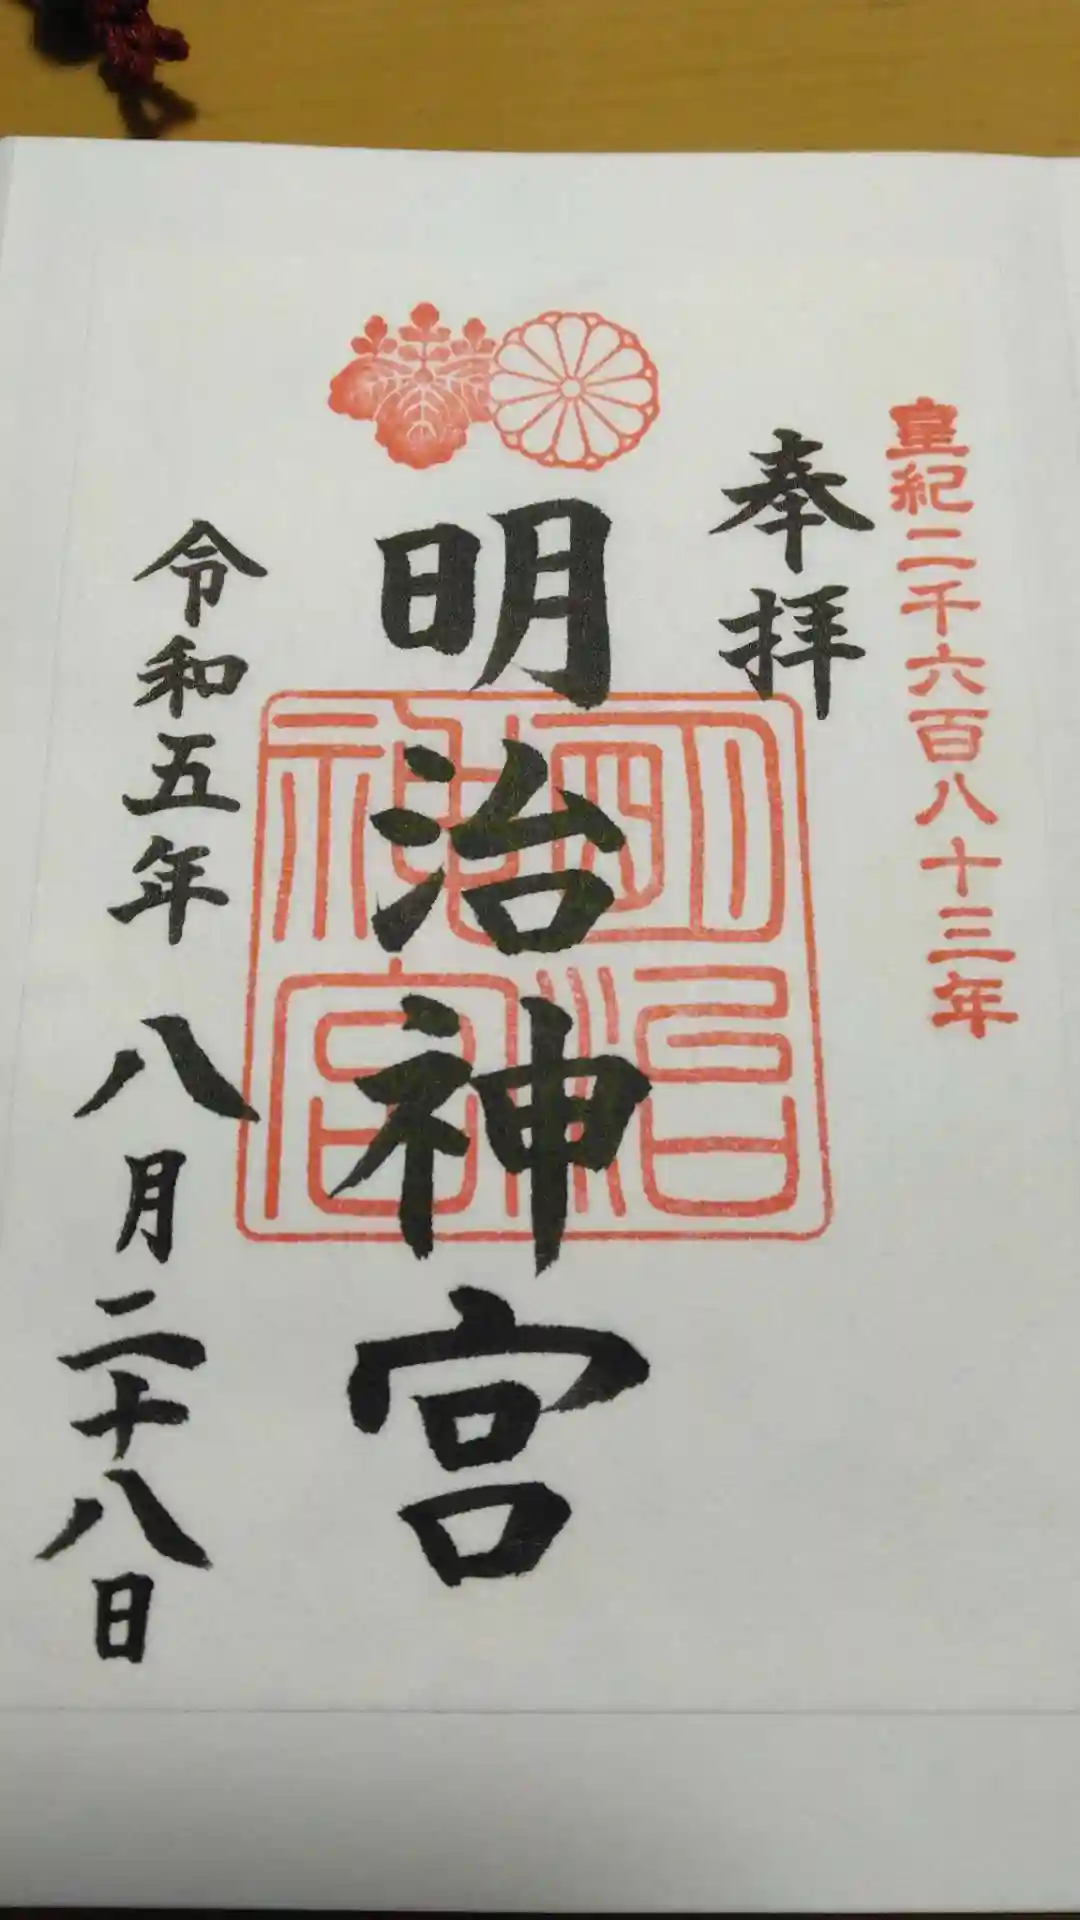 皇紀二千六百八十三年
奉拝
明治神宮
明治神宮
令和五年 八月二十八日